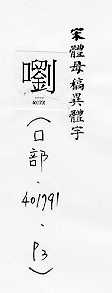 宋體母稿異體字
嚠
(口部．401791．P3)